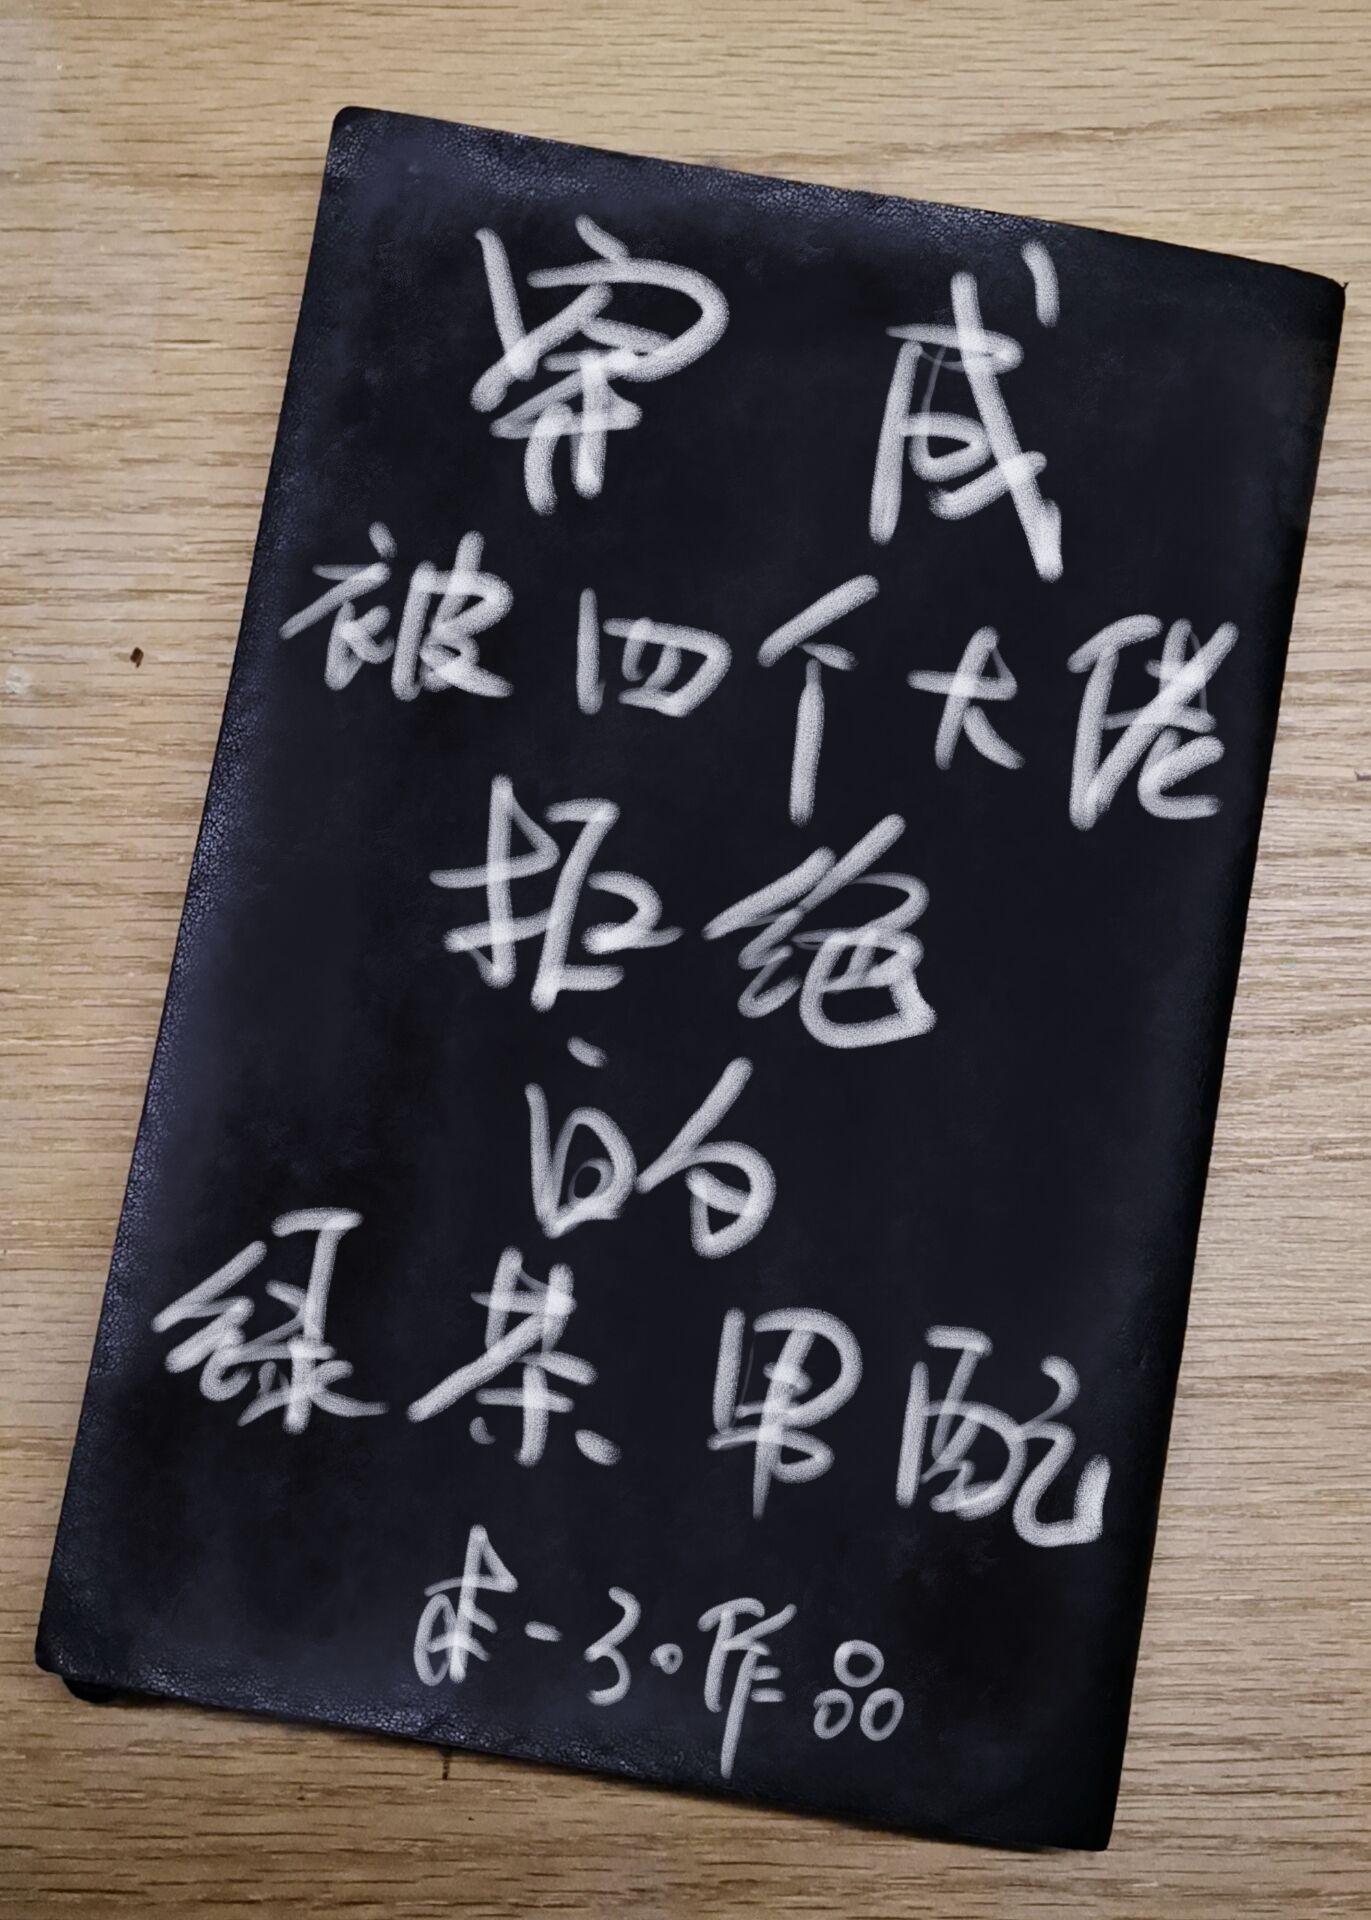 穿成
被四个大佬
拒绝
的
绿茶男配
作品